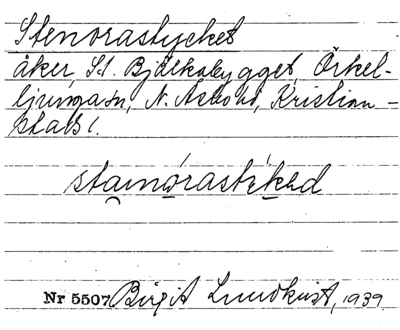 Stenorastycket
åker, St. Bjälkabygget, Örkel-
ljunga sn, N. Åsbo hd, Kristian-
stads l.
stainórastikəd
Nr 5507 Birgit Lundkvist, 1939